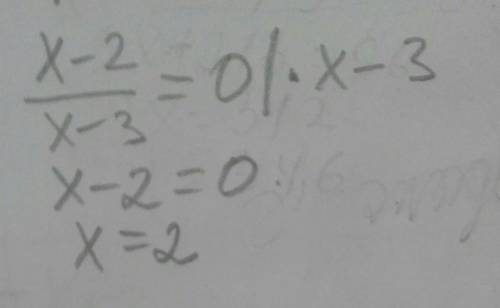 x-2/x-3 = 0 |· x-3
x-2=0
x=2